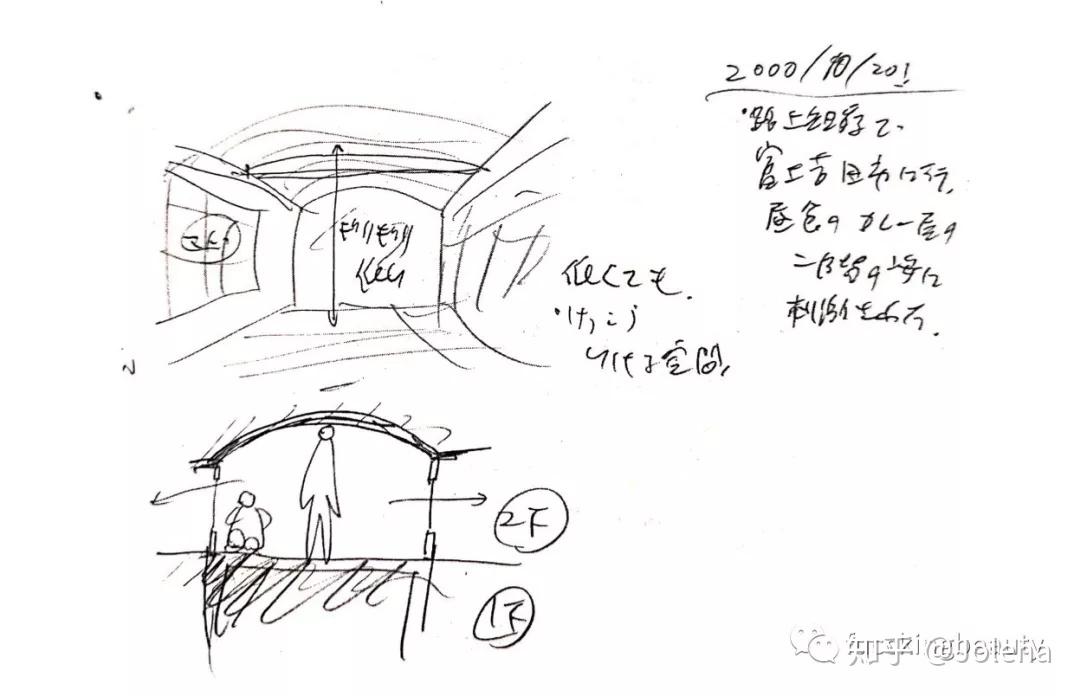 2000/10/20!
・路上
富士吉田市に行、
昼食のカレー屋の
二階の
刺激される。
ギリギリ
低い
低くても、
・けっこう
いける空間、
2F
1F
知乎 @Jolena